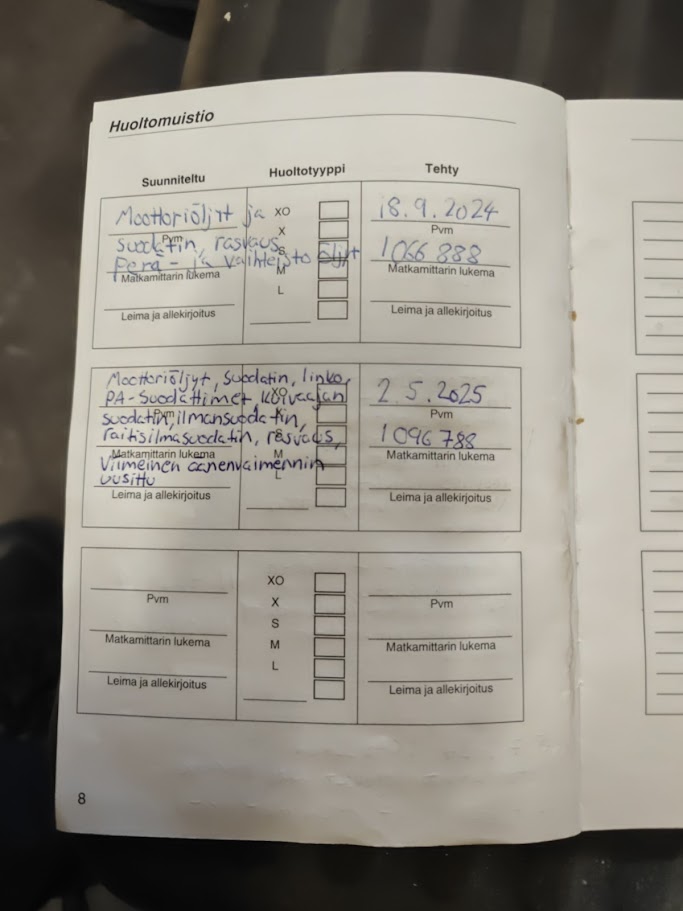 Huoltomuistio
Suunniteltu Huoltotyyppi Tehty
Moottoriöljyt ja
suodatin, rasvaus
Perä- ja vaihteisto öljyt
Pvm
Matkamittarin lukema
Leima ja allekirjoitus
XO
X
S
M
L
18.9.2024
Pvm
1066 888
Matkamittarin lukema
Leima ja allekirjoitus
Moottoriöljyt, suodatin, linko,
PA-suodattimet, kuivaajan
suodatin, ilmansuodatin,
raitisilmasuodatin, rasvaus,
Viimeinen äänenvaimennin
uusittu
Pvm
Matkamittarin lukema
Leima ja allekirjoitus
XO
X
S
M
L
2.5.2025
Pvm
1096788
Matkamittarin lukema
Leima ja allekirjoitus
Pvm
Matkamittarin lukema
Leima ja allekirjoitus
XO
X
S
M
L
Pvm
Matkamittarin lukema
Leima ja allekirjoitus
8